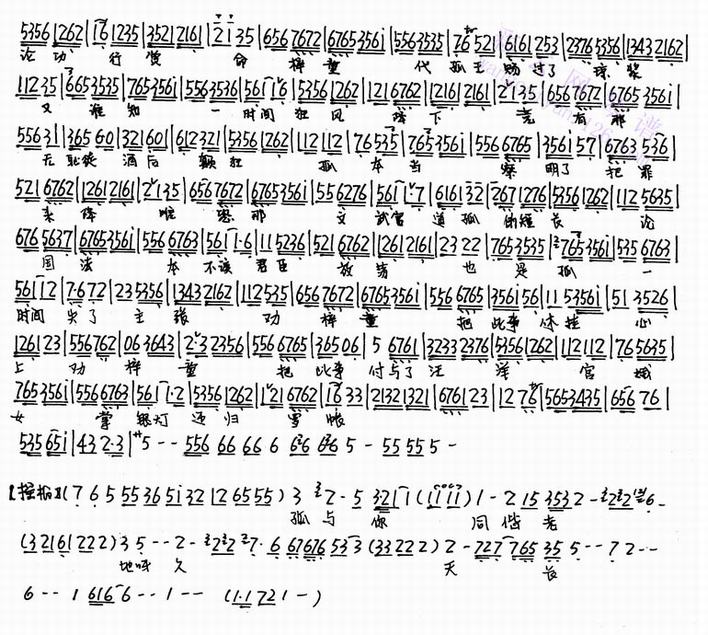 5356|1262|16 1235|3521 2161|2135|656 7672|6765 3561|556 3535|76 521|6161 253|2376 5356|1343 2162|
论功 行赏 命 梓童 代孤王 赐过了 琼浆
112 35|665 3535|765 3561|556 3536|561 16|5356 1262|121 6762|1216 2161|2135|656 7672|6765 3561|
又 谁知 一时间 狂风 降下 竟有那
556 31|365 60|321 601|612 321|5356 1262|112 112|76 535|765 3561|556 6765|3561 57|6763 536|
无耻徒 酒后 颠狂 孤 本当 察明了 把罪
521 6762|1261 2161|2135|656 7672|6765 3561|55 6276|561 17|6161 32|267 1276|5356 1262|112 5635|
来降 唯恐那 文武官 道孤 短长 论
676 5637|6765 3561|556 6763|561 1·6|11 5236|521 6762|1261 2161|23 22|765 3535|765 3561|535 6763|
国法 本不该 君臣 放肆 也是孤 一
561 12|7·6 72|23 5356|1343 2162|112 535|656 7672|6765 3561|556 6765|3561 56|11 5356i|51 3526|
时间 失了 主张 劝 梓童 把此事 休挂 心
1261 23|556 762|06 3643|2·3 2356|556 6765|365 06|5 6761|3233 2376|5356 1262|112 112|765 635|
上 劝梓童 把此事 付与了 汪洋 宫娥
765 3561|556 6763|561 1·2|5356 1262|121 6762|16 33|2132 1321|6761 23|12 7|565 3435|656 76|
女 掌银灯 还归 罗帐
535 651|43 2·3|5 - - 556 66 66 6 66 66 5 - 55 55 5 -
(7 6 5 55 36 51 32 12 65 55) 3 2 - 5 32 1 1 (11 11) 1 - 2 15 353 2 - 2 2 2 6 -
孤 与 你 同偕 老
(32 161 222) 3 5 - - 2 - 2 2 2 7 · 6 67676 53 3 (33 222) 2 - 727 765 35 5 - - 7 2 - -
地呀 久 天 长
6 - - 1 616 6 - - 1 - - (1·1 7 2 1 - )